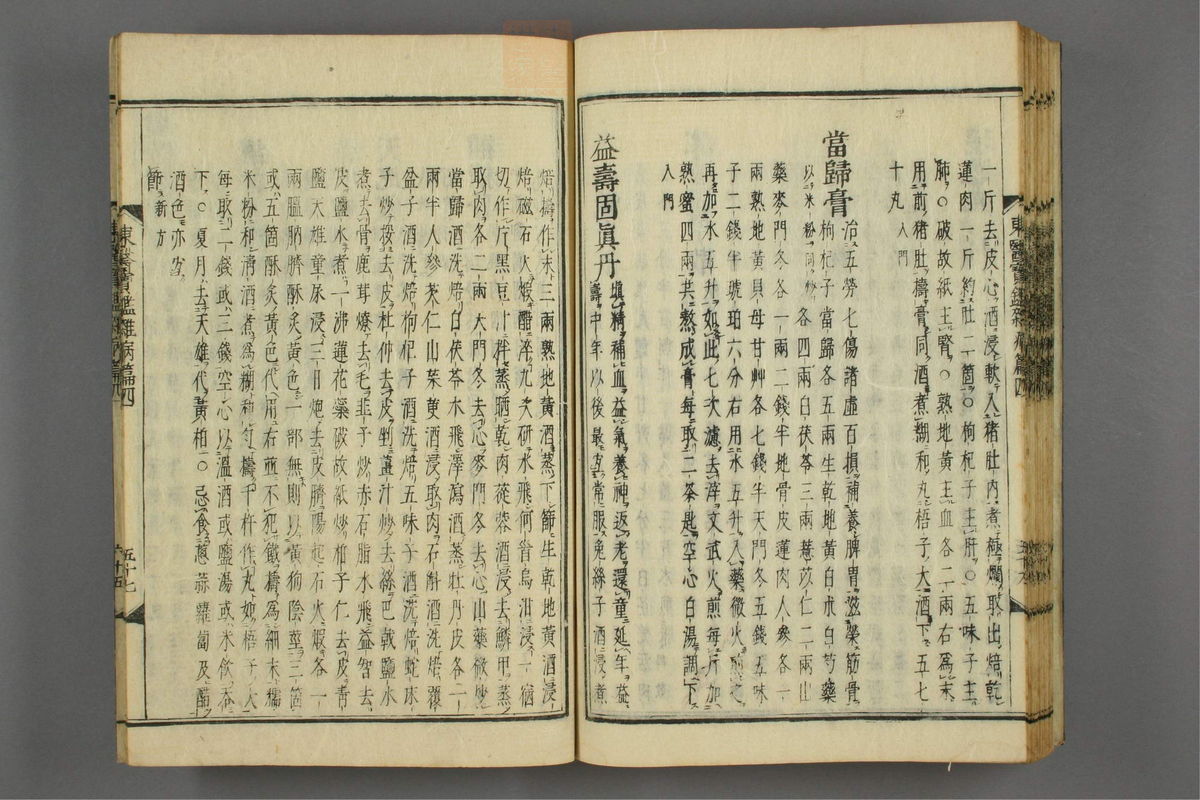 一斤去皮心酒浸軟入猪肚内煮極爛取出焙乾
蓮肉一斤約肚二箇○枸杞子主肝○五味子主
肺○破故紙主腎○熟地黃主血各二兩右爲末
用前猪肚擣膏同酒煮糊和丸梧子大酒下五七
十丸入門
當歸膏治五勞七傷諸虛百損補養脾胃滋榮筋骨
枸杞子當歸各五兩生乾地黃白朮白芍藥
以米粉同炒各四兩白茯苓三兩薏苡仁二兩山
藥麥門冬各一兩二錢半地骨皮蓮肉人參各一
兩熟地黃貝母甘艸各七錢半天門冬五錢五味
子二錢半琥珀六分右用水五升入藥微火煎之
再加水五升如此七次濾去滓文武火煎每一斤加
熟蜜四兩共熬成膏每取二茶匙空心白湯調下
入門
益壽固眞丹塡精補血益氣養神返老還童延年益
壽中年以後最宜常服兔絲子酒浸煮
焙擣作末三兩熟地黃酒蒸下節生乾地黃酒浸
焙磁石火煆醋淬九次研水飛何首烏泔浸一宿
切作片黑豆汁拌蒸晒乾肉蓯蓉酒浸去鱗甲蒸
取肉各二兩天門冬去心麥門冬去心山藥微炒
當歸酒洗焙白茯苓水飛澤瀉酒蒸牡丹皮各一
兩半人參茶仁山茱萸酒浸取肉石斛酒洗焙覆
盆子酒洗焙枸杞子酒洗焙五味子酒洗焙蛇床
子炒挼去皮杜仲去皮剉薑汁炒去絲巴戟鹽水
煮去骨鹿茸燎去毛韭子炒赤石脂水飛益智去
皮鹽水煮一沸蓮花蘂破故紙炒栢子仁去皮靑
鹽天雄童尿浸三日炮去皮臍陽起石火煆各一
兩膃肭臍酥炙黃色一部無則以黃狗陰莖三箇
或五箇酥炙黃色代用右並不犯鐵擣爲細末糯
米粉和淸酒煮爲糊和勻擣千杵作丸如梧子大
每取二錢或三錢空心以溫酒或鹽湯或米飮吞
下○夏月去天雄代黃栢○忌食葱蒜蘿蔔及醋
酒色亦當
節新方
東醫寶鑑雜病篇四
五十七